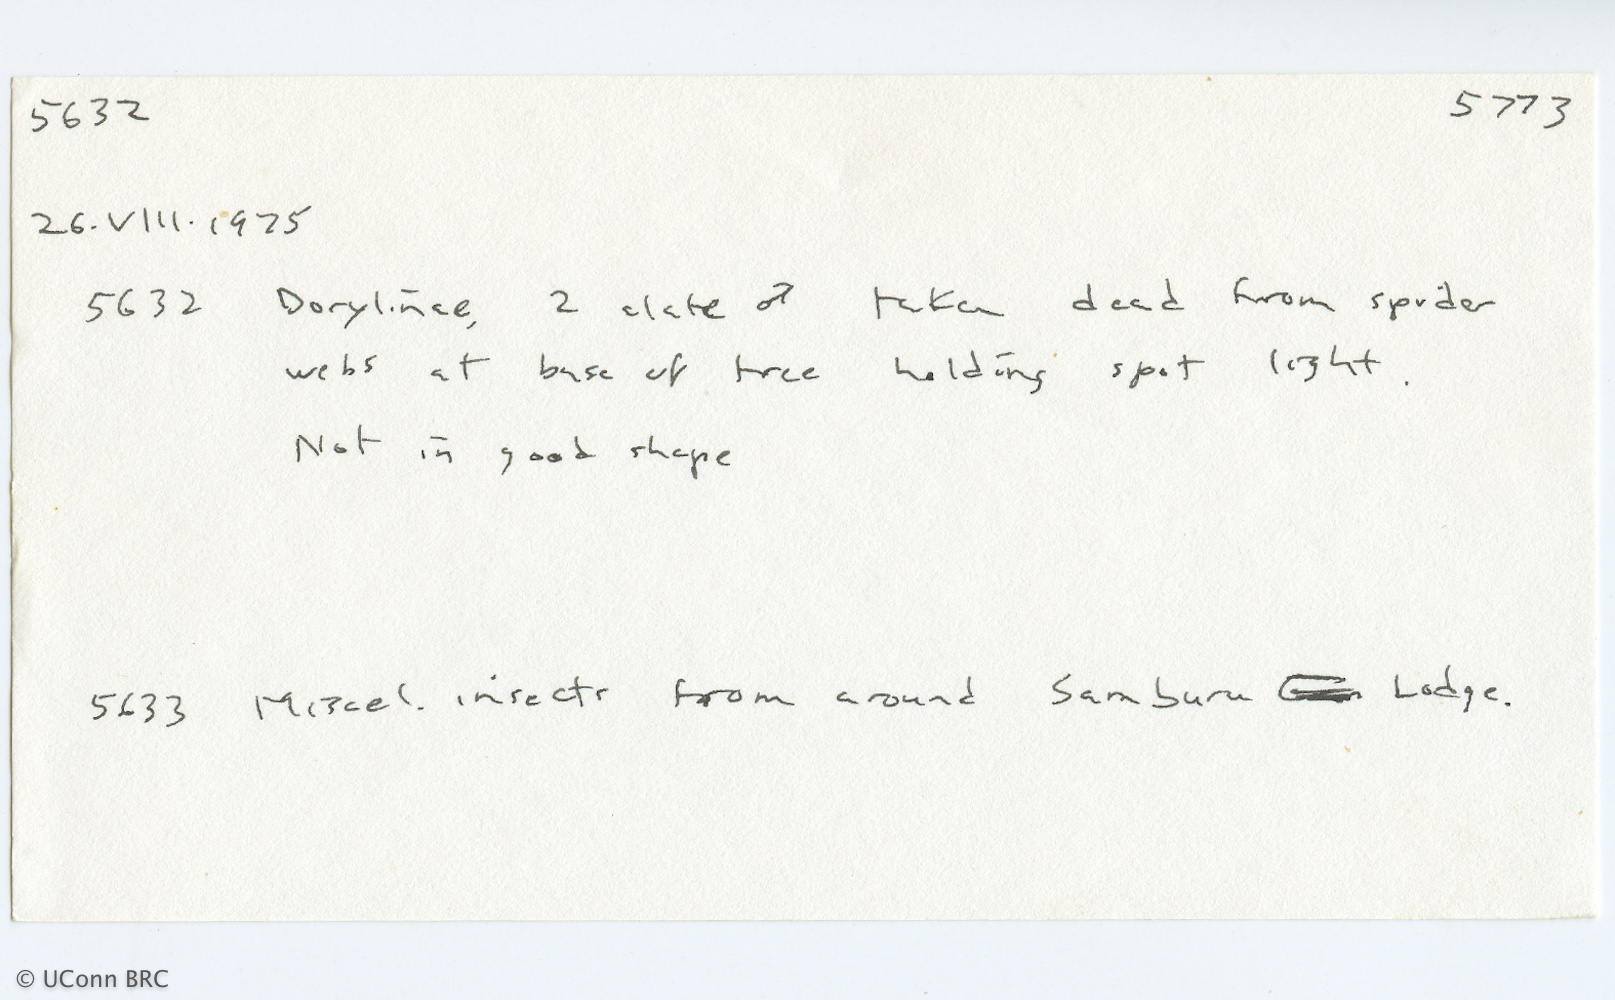 5632 5773
26.VIII.1975
5632 Dorylinae, 2 alate ♂ taken dead from spider
webs at base of tree holding spot light.
Not in good shape
5633 Miscel. insects from around Samburu Lodge.
© UConn BRC